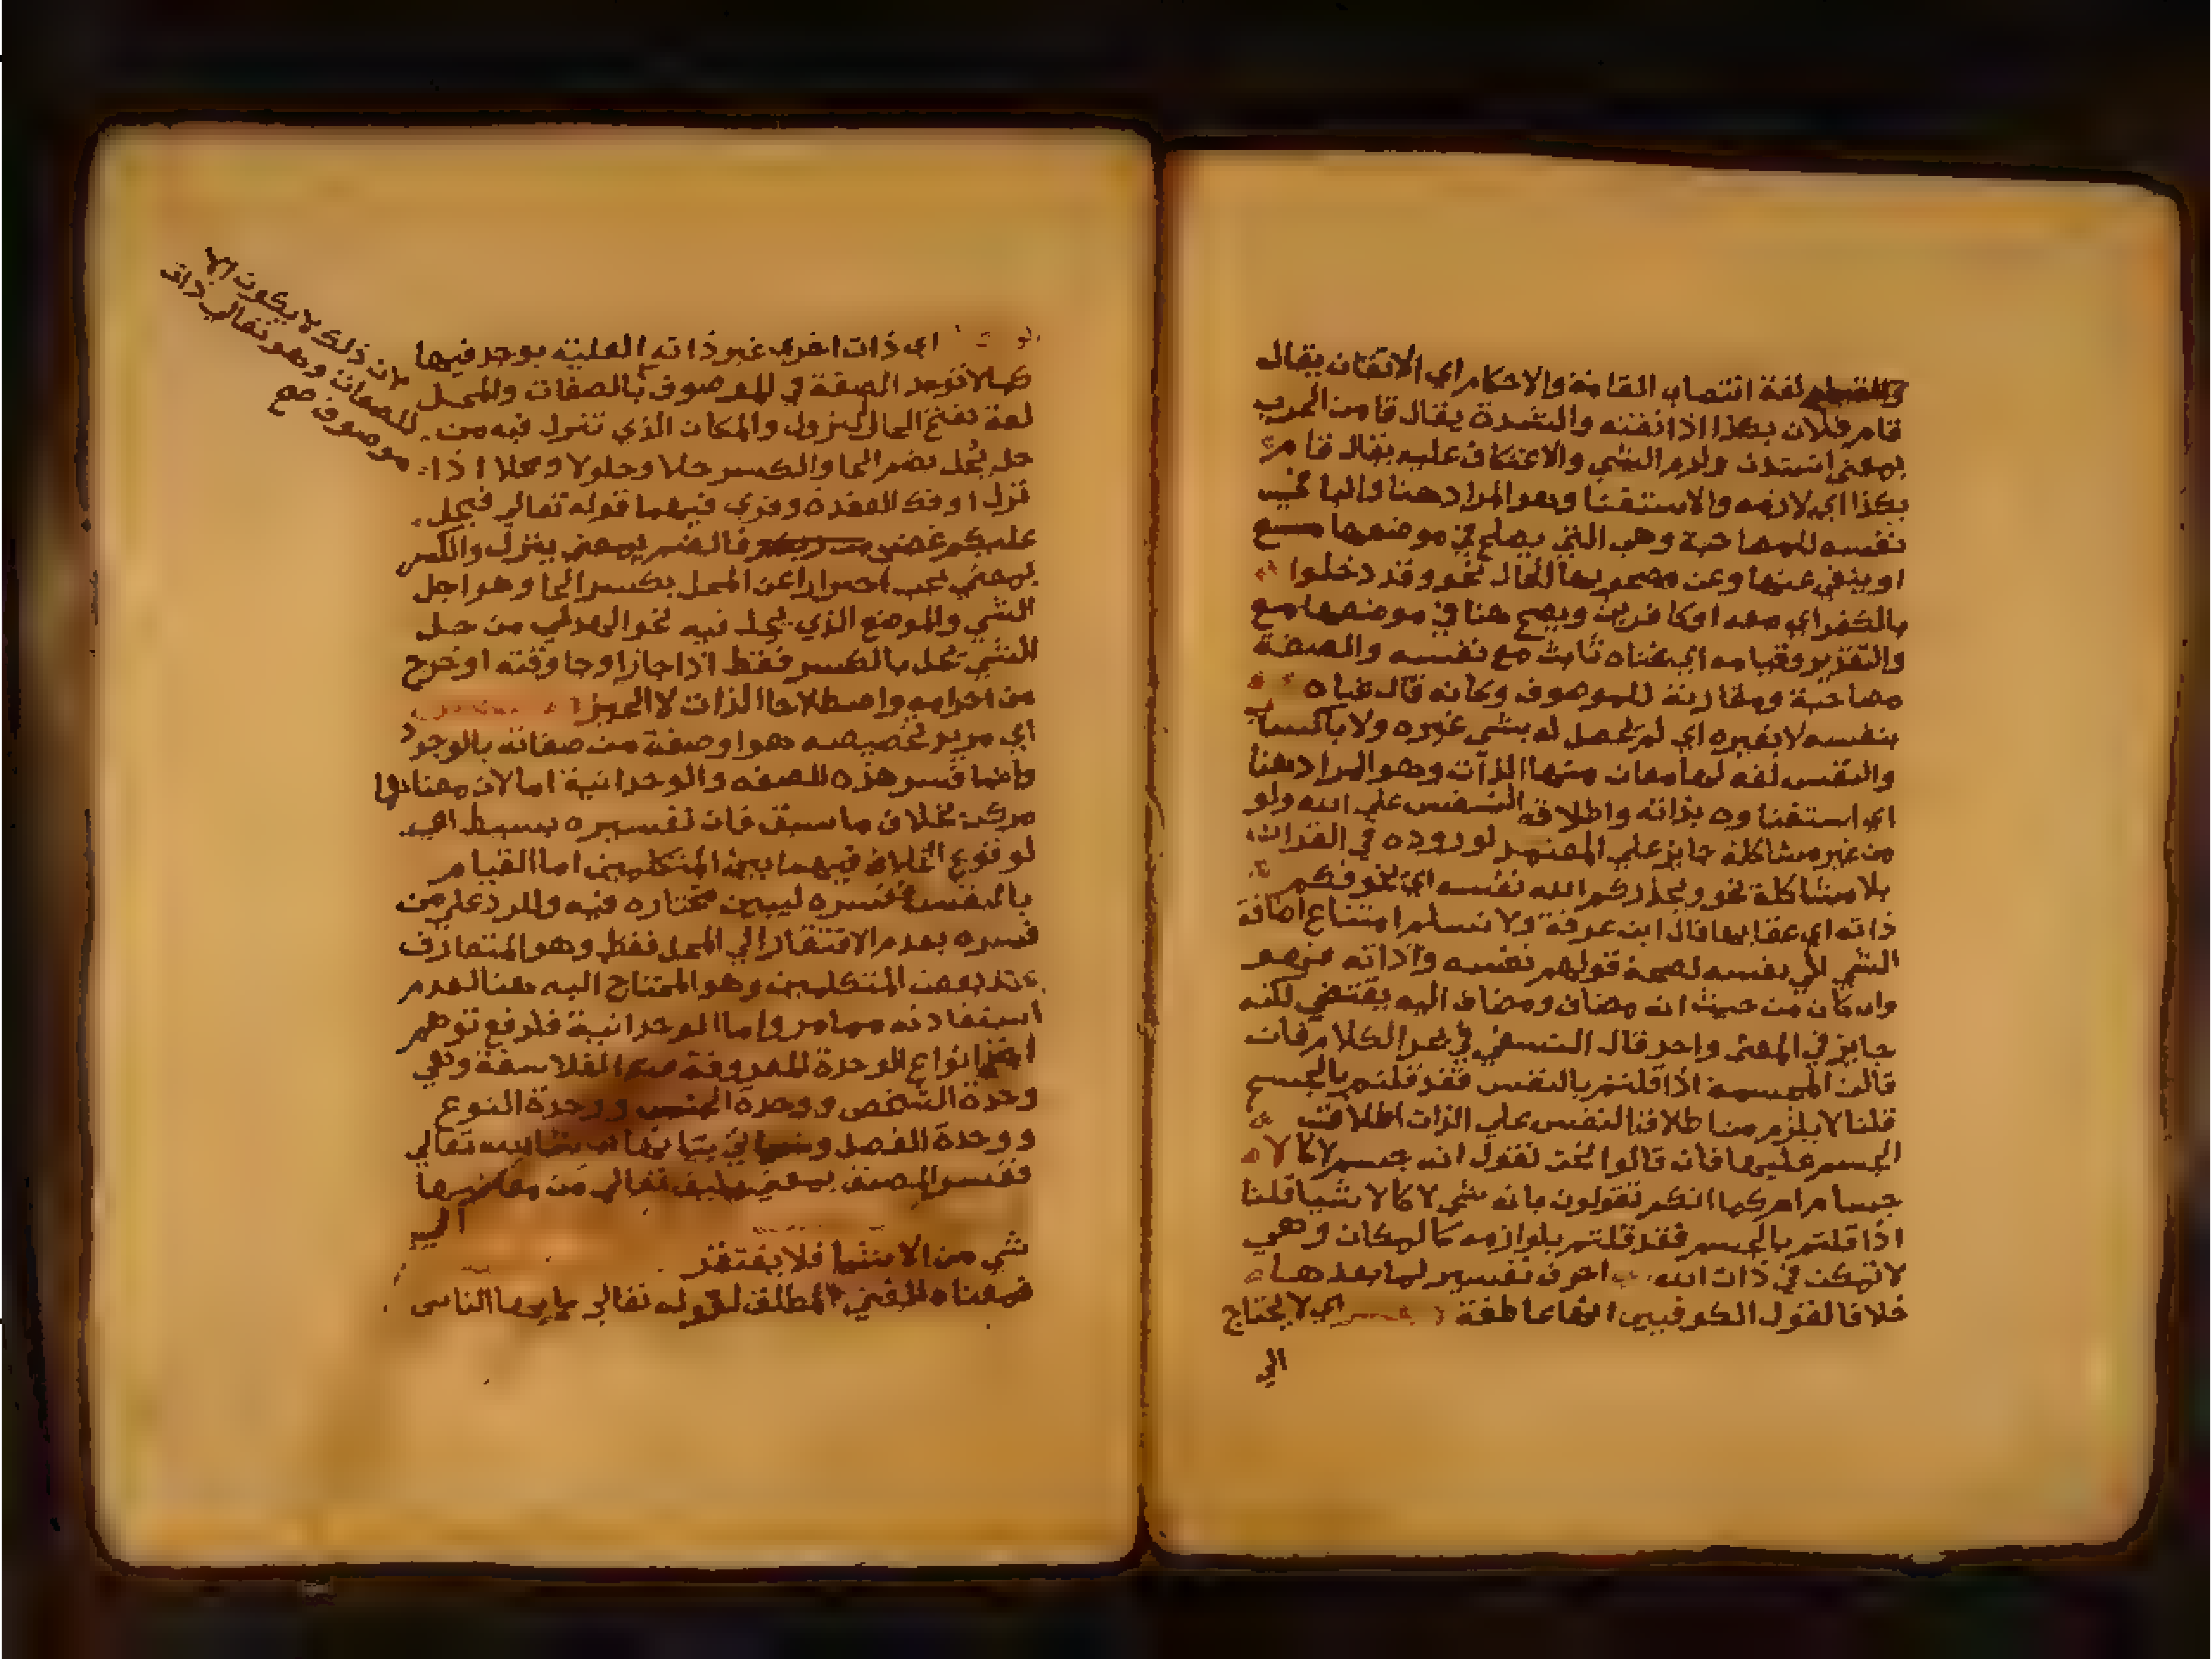 والقيام لغة انتصاب القامة والاحكام اي الاتقان يقال
قام فلان بكذا اذا اتقنه والشدة يقال قامت الحرب
بمعني اشتدت ولزم الشي والاعتكاف عليه يقال قام
بكذا اي لازمه والاستغنا وهو المراد هنا والبا في
نفسه للمصاحبة وهي التي يصلح في موضعها مع
او يغني عنها وعن مصحوبها الحال نحو وقد دخلوا
بالكفر اي معه او كافرين ويصح هنا في موضعها مع
والتقدير وقيامه اي غناه ثابت مع نفسه والصفة
مصاحبة ومقارنة للموصوف وكانه قال غناه
بنفسه لا بغيره اي لم تحصل له بشي غيره ولا باكتساب
والنفس لغة لها معان منها الذات وهو المراد هنا
اي استغناوه بذاته واطلاق النفس علي الله ولو
من غير مشاكلة جايز علي المعتمد لوروده في القران
بلا مشاكلة نحو ويحذركم الله نفسه اي يخوفكم
ذاته اي عقابها قال ابن عرفة ولا نسلم امتناع اضافة
الشي الي نفسه لصحة قولهم نفسه وذاته فهو
وان كان من حيث انه مضاف ومضاف اليه يقتضي لكنه
جايز في المعني واحد قال النسفي في بحر الكلام فان
قالت المجسمة اذا قلتم بالنفس فقد قلتم بالجسم
قلنا لا يلزم من اطلاقنا النفس علي الذات اطلاق
الجسم عليها فان قالوا نحن نقول انه جسم لا كالا
جسام امركها انكم تقولون بانه شي لا كالاشيا قلنا
اذا قلتم بالجسم فقد قلتم بلوازمه كالمكان وهي
لا تمكن في ذات الله احرف تفسير لما بعدها
خلافا لقول الكوفيين انها عاطفة اي لا يحتاج
الي
اي ذات اخري غير ذاته العلية يوجد فيها
كما لا توجد الصفة في الموصوف بالصفات والمحل
لغة بفتح الحا النزول والمكان الذي تنزل فيه من
حل يحل بضم الحا والكسر حلا وحلولا ومحلا اذا
نزل او فك العقدة وقري فيهما قوله تعالي فيحل
عليكم غضبي فالضم بمعني ينزل والكسر
بمعني يجب احترازا عن المحل بكسر الحا وهو اجل
الشي والموضع الذي يحل فيه نحو الهدي من حل
الشي يحل بالكسر فقط اذا جاز او جا وقته او خرج
من احرامه واصطلاحا الذات لا الحيز
اي مريد تخصيصه هو او صفة من صفاته بالوجود
وانما فسر هذه الصفة والوحدانية اما لان معناها
مركب بخلاف ما سبق فان تفسيره بسيط اي
لوقوع الخلاف فيهما بين المتكلمين اما القيام
بالنفس ففسره ليبين مختاره فيه والرد علي من
فسره بعدم الافتقار الي المحل فقط وهو المتعارف
عند بعض المتكلمين وهو المحتاج اليه هنا لعدم
استفادته مما مر واما الوحدانية فلدفع توهم
انواع الوحدة المعروفة عند الفلاسفة وهي
وحدة الشخص ووحدة الجنس ووحدة النوع
ووحدة الفصل
ففسر المصنف بمعني يليق تعالي من معانيها
الي
شي من الاشيا فلا يفتقر
فمعناه الغني المطلق لقوله تعالي يا ايها الناس
لان ذلك لا يكون الا
للصفات وهو تعالي ذات
موصوف مع